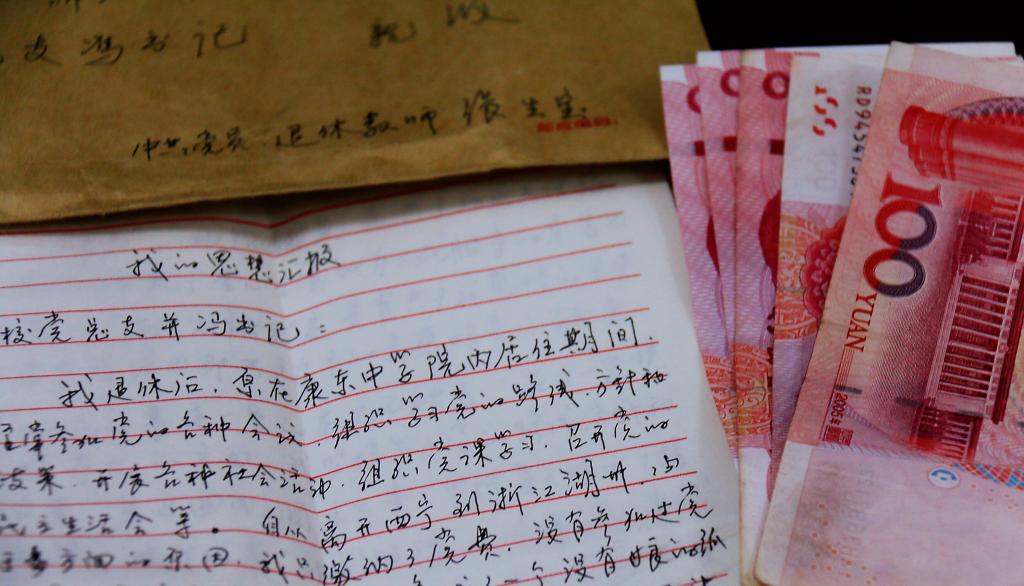 支冯书记 亲收
中共党员 退休教师 张生宝
我的思想汇报
校党总支并冯书记：
我退休后，原在康东中学院内居住期间，
参加党的各种会议，组织学习党的路线、方针和
政策，开展各种社会活动，组织党课学习，召开党的
民主生活会等。自从离开西宁到浙江湖州，以
多方面的原因，我只缴纳了党费，没有参加过党
没有
RD9454730
100
YUAN
2005年